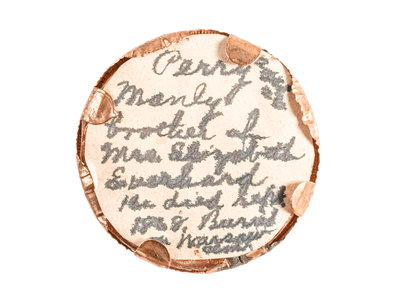 Perry
Manly
brother of
Mrs. Elizabeth
Everhard
He died Sept
Buried
Warsaw